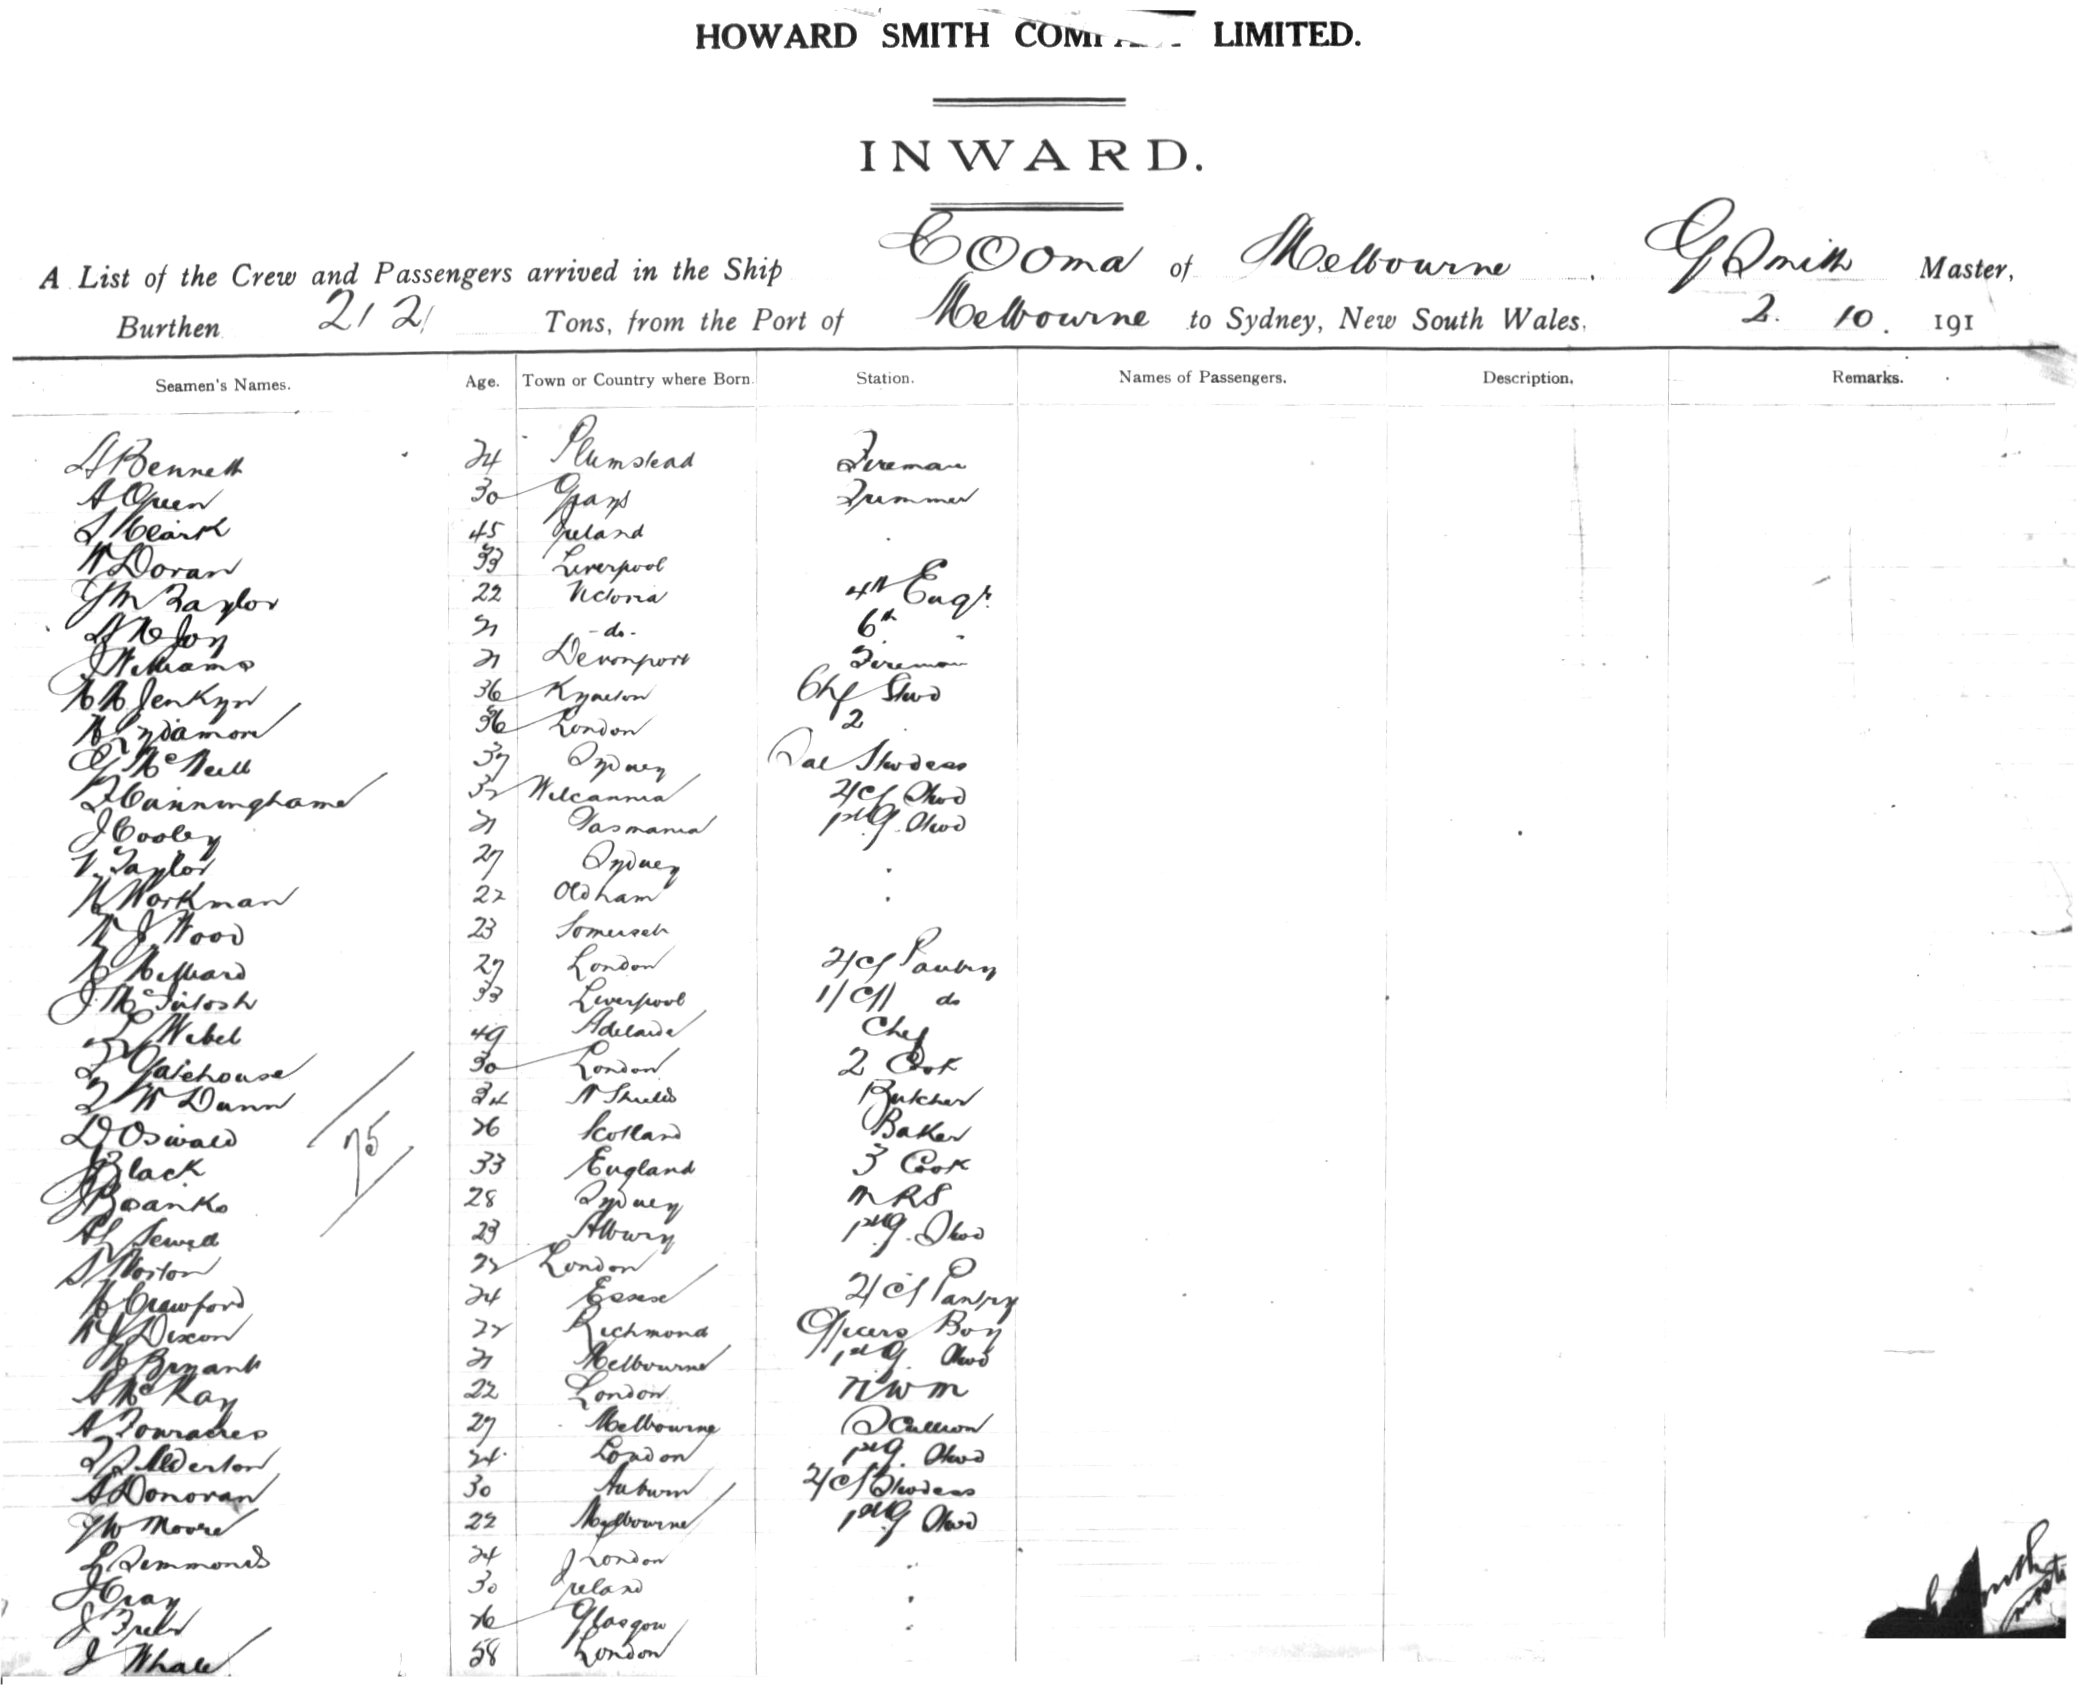 HOWARD SMITH COMPANY LIMITED.
INWARD.
A List of the Crew and Passengers arrived in the Ship Cooma of Melbourne. G Smith Master,
Burthen 2121 Tons, from the Port of Melbourne to Sydney, New South Wales. 2. 10. 191
Seamen's Names. Age. Town or Country where Born. Station. Names of Passengers. Description. Remarks.
Bennett 24 Plumstead Fireman
A Green 30 Grays Trimmer
Clark 45 Ireland
W Doran 33 Liverpool
Taylor 22 Victoria 4th Engr.
Joy 21 -do- 6th "
J Williams 21 Devonport Fireman
Jenkyn 36 Kyneton Chf Stwd
36 London 2
G McNeill 37 Sydney Stwdess
Canninghame 32 Wilcannia 2/Cl Stwd
J Cooley 21 Tasmania Stwd
V. Taylor 27 Sydney "
Workman 22 Oldham "
W J Wood 23 Somerset
27 London 2/Cl Pantry
J McIntosh 33 Liverpool 1/Cl do
Webel 49 Adelaide Chef
Gatehouse 30 London 2 Cook
W Dunn 34 N Shields Butcher
D Oswald 26 Scotland Baker
75
J Black 33 England 3 Cook
J Banks 28 Sydney M R S
Sewell 23 Albury Stwd
22 London
Crawford 24 Essex 2/Cl Pantry
Dixon 22 Richmond Officers Boy
Bryant 21 Melbourne Stwd
A McKay 22 London N W M
A Fouracres 27 Melbourne Scullion
Alderton 24 London Stwd
A Donovan 30 Auburn 2/Cl Stwdess
Moore 22 Melbourne Stwd
Simmonds 24 London "
J Gray 30 Ireland "
J 26 Glasgow "
J Whale 58 London